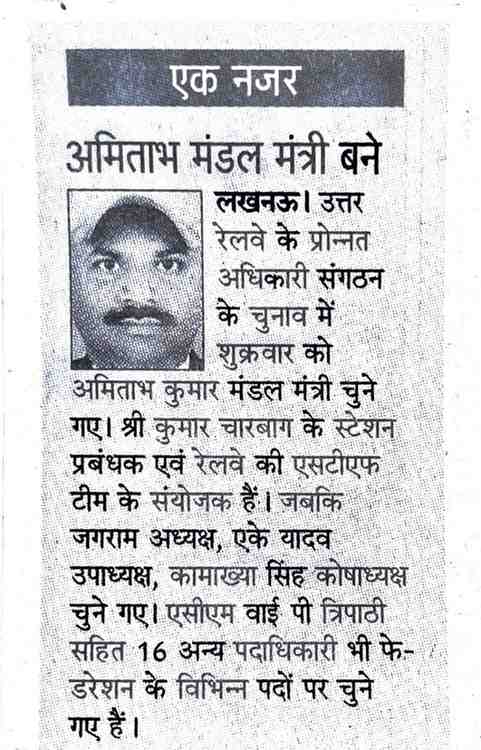 एक नजर
अमिताभ मंडल मंत्री बने
लखनऊ। उत्तर
रेलवे के प्रोन्नत
अधिकारी संगठन
के चुनाव में
शुक्रवार को
अमिताभ कुमार मंडल मंत्री चुने
गए। श्री कुमार चारबाग के स्टेशन
प्रबंधक एवं रेलवे की एसटीएफ
टीम के संयोजक हैं। जबकि
जगराम अध्यक्ष, एके यादव
उपाध्यक्ष, कामाख्या सिंह कोषाध्यक्ष
चुने गए। एसीएम वाई पी त्रिपाठी
सहित 16 अन्य पदाधिकारी भी फे-
डरेशन के विभिन्न पदों पर चुने
गए हैं।